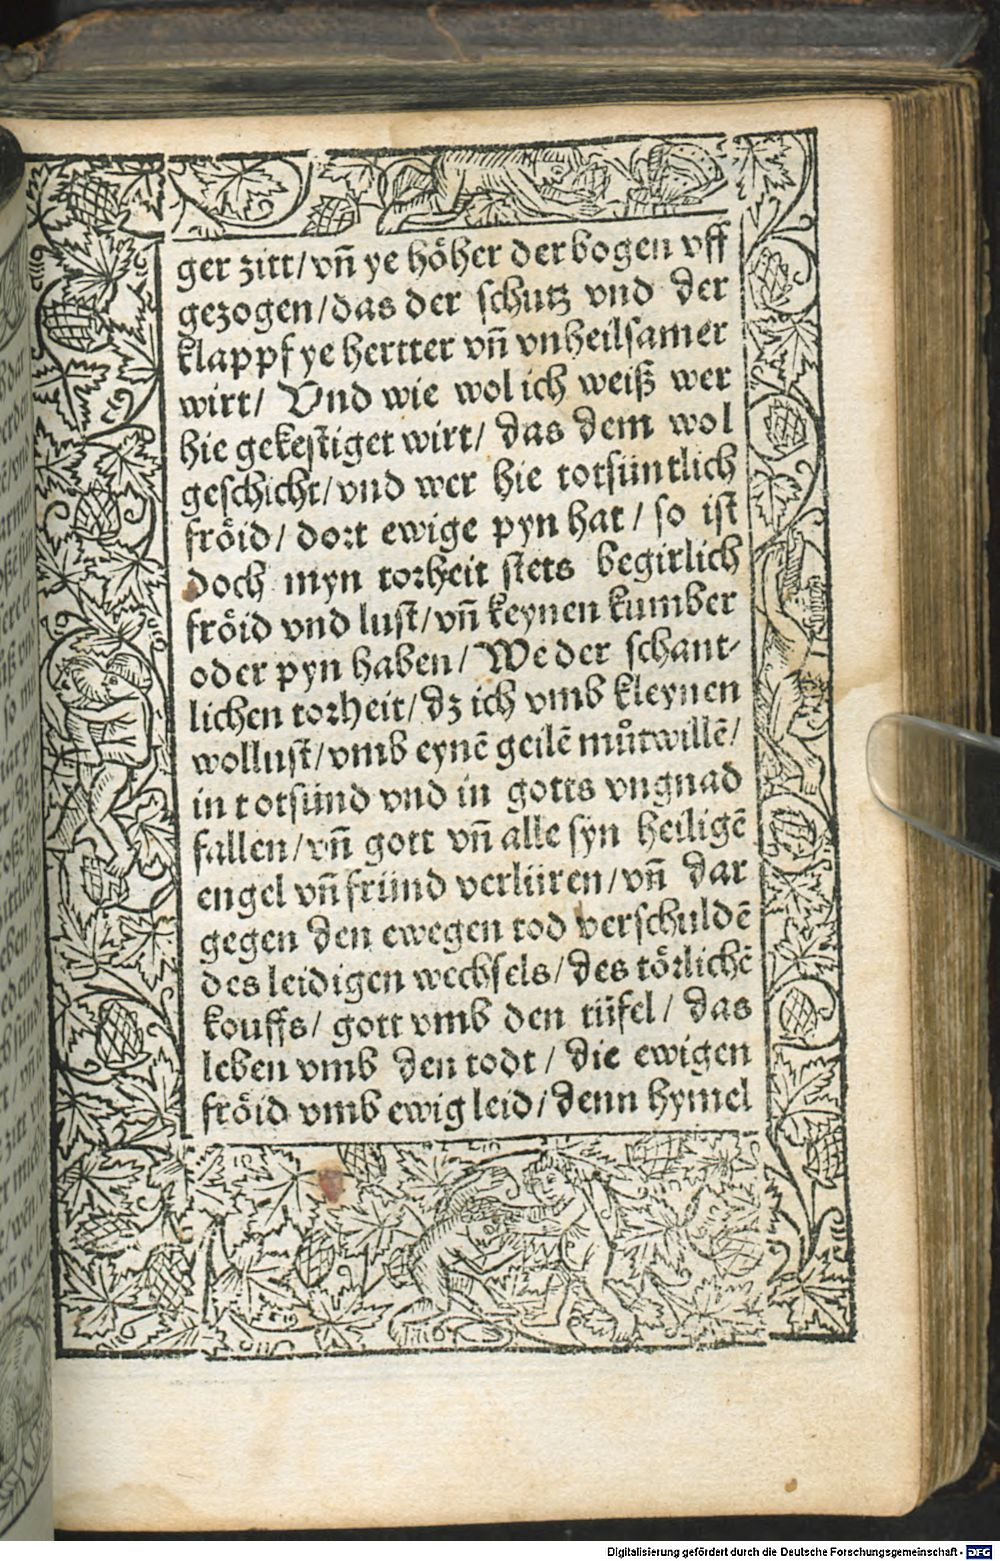 ger zitt/vn̄ ye höher der bogen vff
gezogen/das der schutz vnd der
klappf ye hertter vn̄ vnheilsamer
wirt/ Vnd wie wol ich weiß wer
hie gekestiget wirt/ das dem wol
geschicht/vnd wer hie totsüntlich
fröid/ dort ewige pyn hat/ so ist
doch myn torheit stets begirlich
fröid vnd lust/vn̄ keynen kumber
oder pyn haben/ We der schant-
lichen torheit/ dz ich vmb kleynen
wollust/vmb eynē geilē můtwillē/
in totsünd vnd in gotts vngnad
fallen/vn̄ gott vn̄ alle syn heiligē
engel vn̄ fründ verlüren/vn̄ dar
gegen den ewegen tod verschuldē
des leidigen wechsels/des törlichē
kouffs/ gott vmb den tüfel/ das
leben vmb den todt/ die ewigen
fröid vmb ewig leid/denn hymel
Digitalisierung gefördert durch die Deutsche Forschungsgemeinschaft - DFG